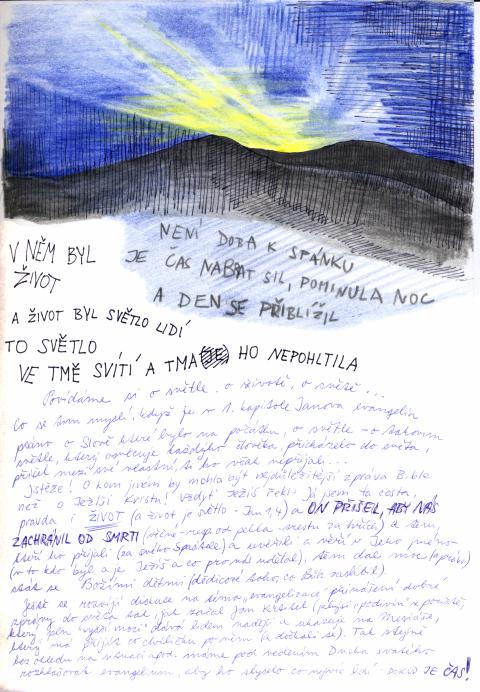 NENÍ DOBA K SPÁNKU
JE ČAS NABRAT SIL, POMINULA NOC
A DEN SE PŘIBLÍŽIL
V NĚM BYL
ŽIVOT
A ŽIVOT BYL SVĚTLO LIDÍ
TO SVĚTLO
VE TMĚ SVÍTÍ A TMA HO NEPOHLTILA
Povídáme si o světle, o životě, o světě...
Co se tím myslí, když je v 1. kapitole Janova evangelia
psáno o Slově které bylo na počátku, o světle - o takovém
světle, který osvěcuje každého člověka, přicházelo do světa,
přišel mezi své vlastní, ti ho však nepřijali...
Jistěže! O kom jiném by mohla být nejdůležitější zpráva Bible
než o Ježíši Kristu! Vždyť Ježíš řekl: Já jsem ta cesta,
pravda i ŽIVOT (a život je světlo - Jan 1,4) a ON PŘIŠEL, ABY NÁS
ZACHRÁNIL OD SMRTI (věčné - resp. od pekla - trestu za hřích) a těm,
kteří ho přijali (za svého Spasitele) a uvěřili a věří v Jeho jméno
(v to kdo byl a je Ježíš a co pro nás udělal), těm dal moc (a právo)
stát se Božími dětmi (dědicové toho, co Bůh zaslíbil).
Ještě se rozvíjí diskuse na téma "evangelizace" přinášení dobré
zprávy do světa tak, jak začal Jan Křtitel
který jen dává lidem naději a ukazuje na Mesiáše,
který má přijít co chviličku po něm (a dočkali se). Tak stejně
bez ohledu na situaci apod. máme pod vedením Ducha svatého
rozhlašovat evangelium, aby ho slyšelo co nejvíc lidí - DOKUD JE ČAS!